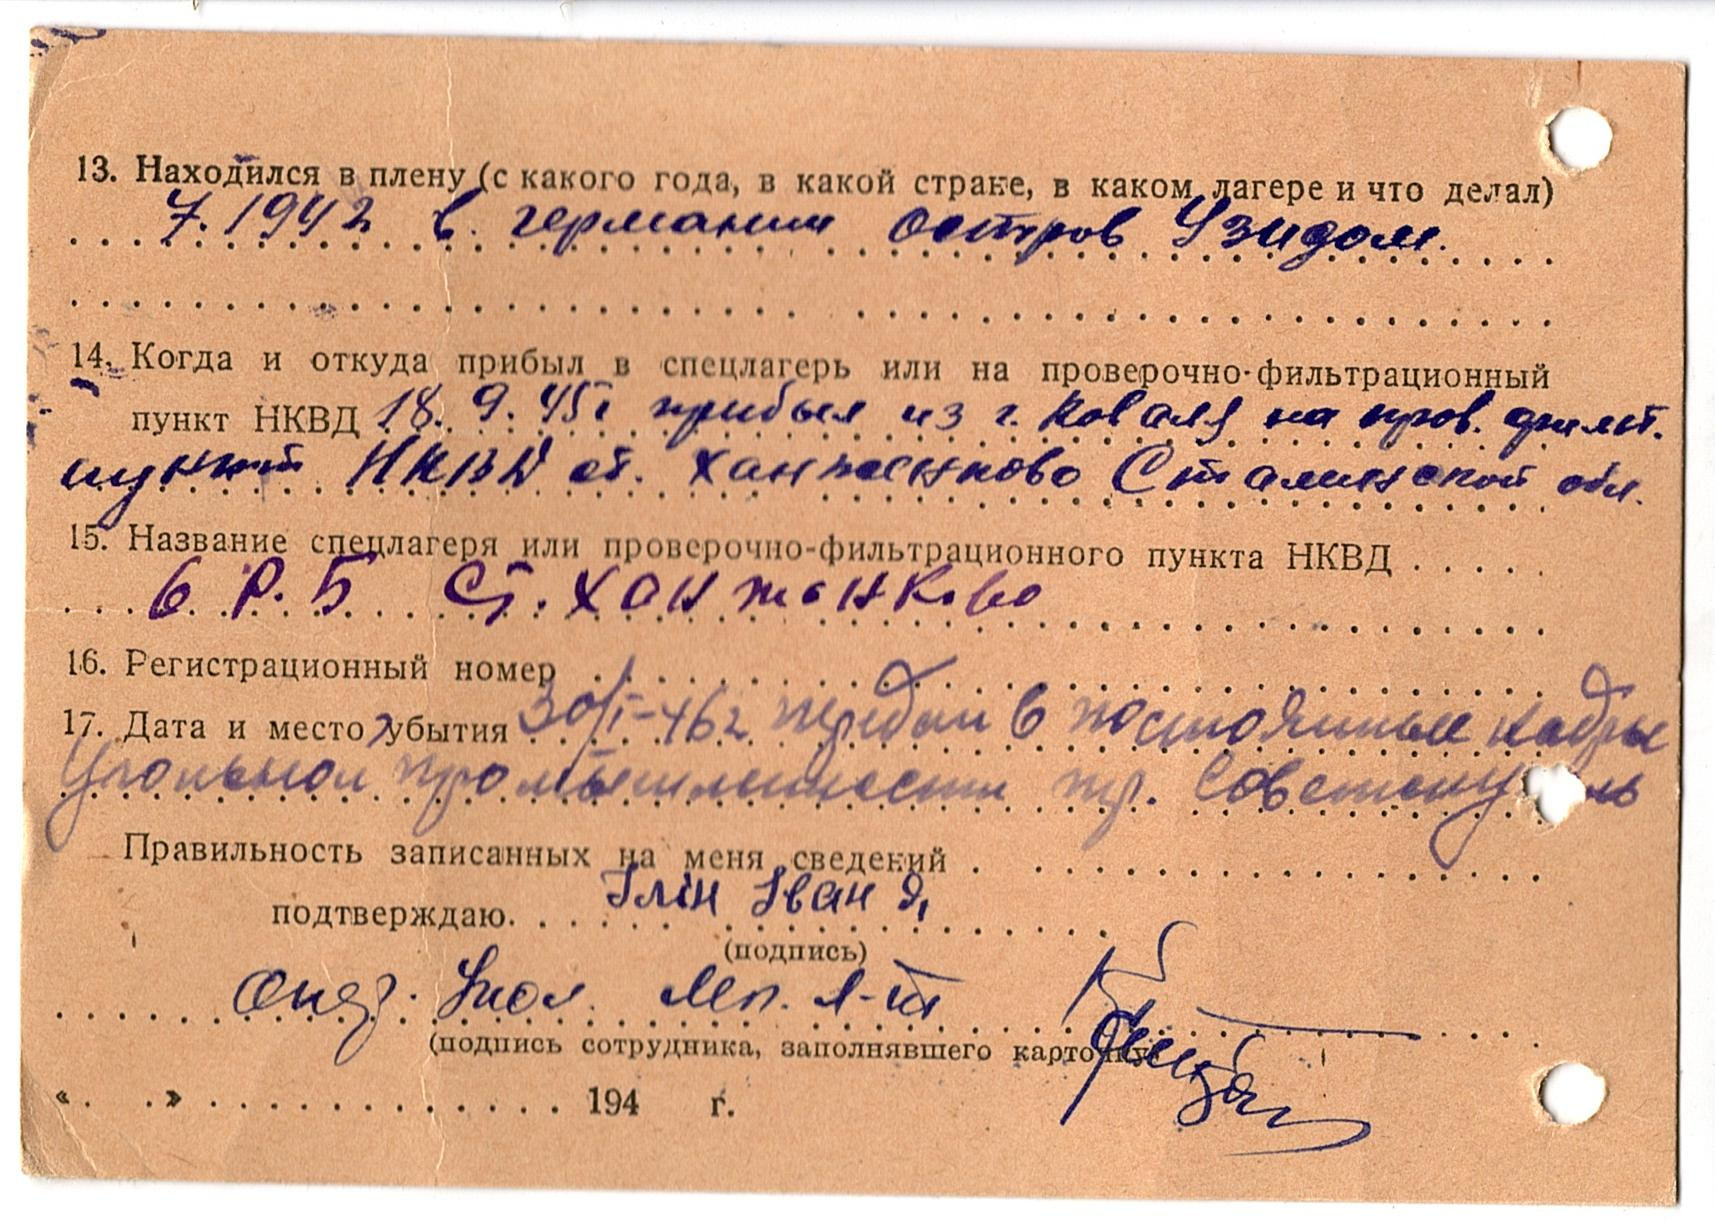 13. Находился в плену (с какого года, в какой стране, в каком лагере и что делал)
7. 1942 в. германии остров Узидом.
14. Когда и откуда прибыл в спецлагерь или на проверочно-фильтрационный
пункт НКВД 18. 9. 45г прибыл из г. Коваля на пров. фильт.
пункт НКВД ст. Ханженково Сталинской обл.
15. Название спецлагеря или проверочно-фильтрационного пункта НКВД
6 Р. Б Ст. Ханженково
16. Регистрационный номер
17. Дата и место убытия 30/I-46г передан в постоянные кадры
Угольной промышленности тр. Советскуголь
Правильность записанных на меня сведений
подтверждаю. Ілін Іван
(подпись)
Мл. л-т
(подпись сотрудника, заполнявшего карточку
« » 194 г.